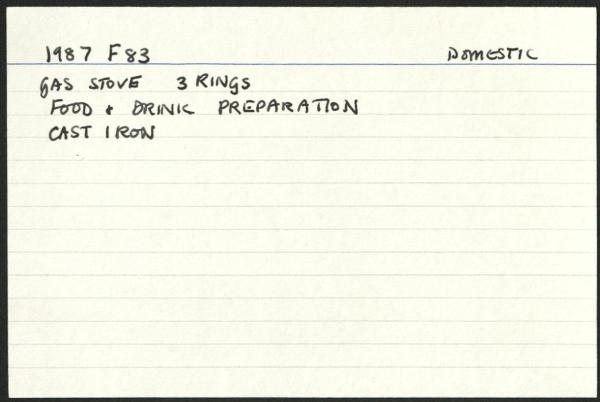 1987 F83 DOMESTIC
GAS STOVE 3 RINGS
FOOD & DRINK PREPARATION
CAST IRON